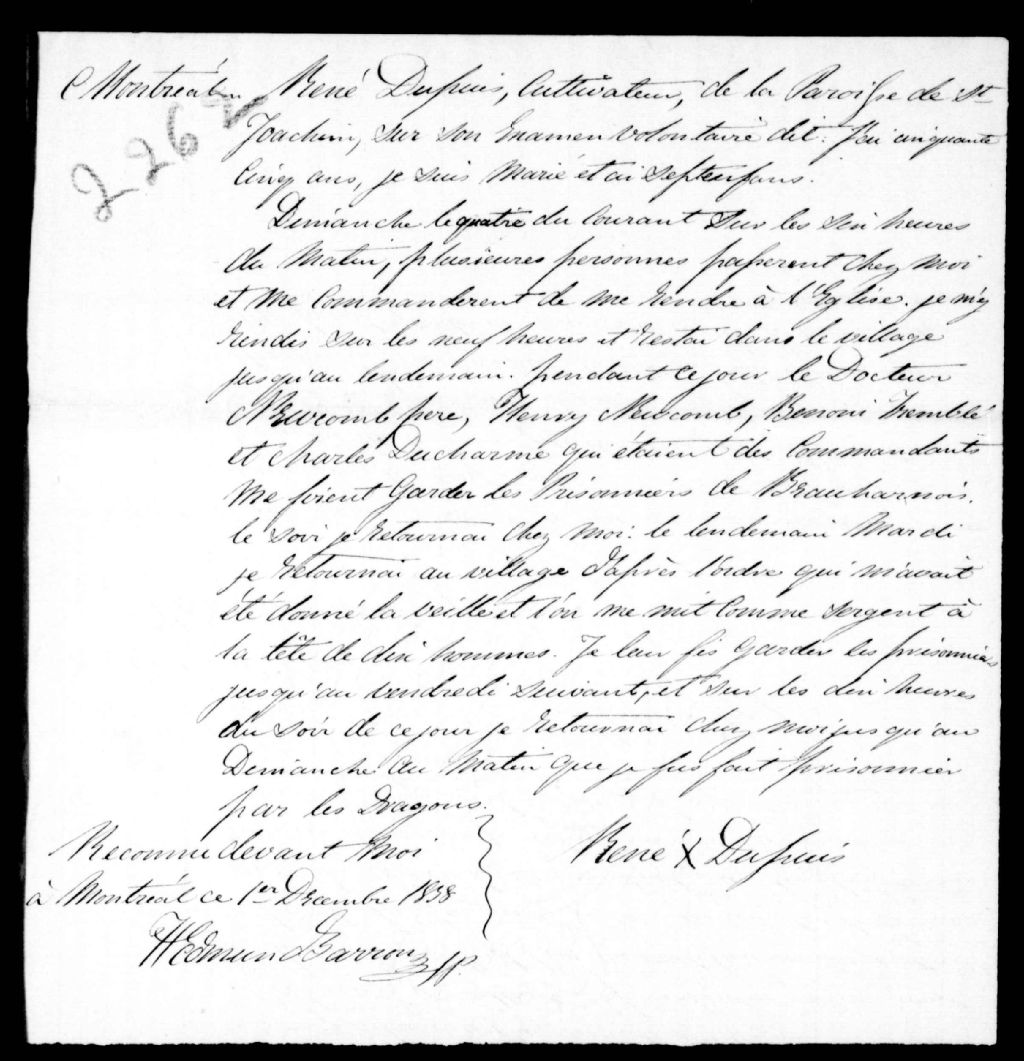 Montréal René Dupuis, Cultivateur, de la Paroisse de St
2262
Joachim, sur son Examen volontaire dit: J'ai cinquante
Cinq ans, je suis Marié et ai Sept enfans.
Dimanche le quatre du Courant Sur les Six heures
du Matin, plusieures personnes passerent chez moi
et me Commanderent de me rendre à l'Eglise. je m'y
rendis sur les neuf heures et restai dans le village
jusqu'au lendemain. pendant ce jour le Docteur
Newcomb pere, Henry Newcomb, Benoni Tremblé
et Charles Ducharme qui étaient des Commandants
me firent Garder les Prisonniers de Beauharnois.
le soir je retournai chez moi: le lendemain Mardi
je retournai au village d'après l'ordre qui m'avait
été donné la veille et l'on me mit Comme Sergent à
la tête de dix hommes. Je leur fis Garder les prisonniers
jusqu'au vendredi suivant, et sur les dix heures
du soir de ce jour je retournai chez moi jusqu'au
Dimanche au Matin que je fus fait prisonnier
par les Dragons.
Reconnu devant Moi
à Montréal ce 1er Decembre 1838
René X Dupuis
H Edmund Barron JP